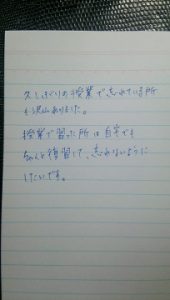 久しぶりの授業で忘れている所
も沢山ありました。
授業で習った所は自宅でも
ちゃんと復習して、忘れないように
したいです。